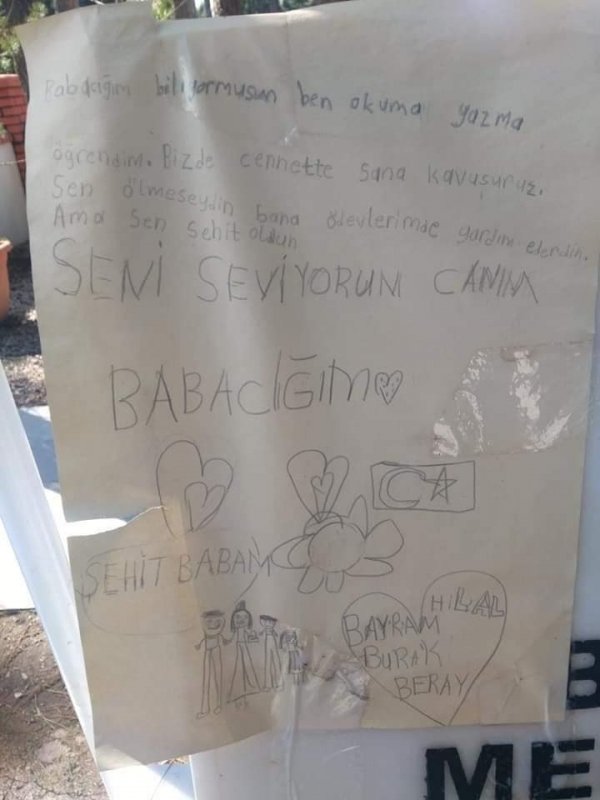 Babacığım biliyormusun ben okuma yazma
öğrendim. Bizde cennette sana kavuşuruz.
Sen ölmeseydin bana ödevlerimde yardım ederdin.
Ama Sen Şehit oldun
SENİ SEVİYORUM CANIM
BABACIĞIM
ŞEHİT BABAM
HİLAL
BAYRAM
BURAK
BERAY
ME